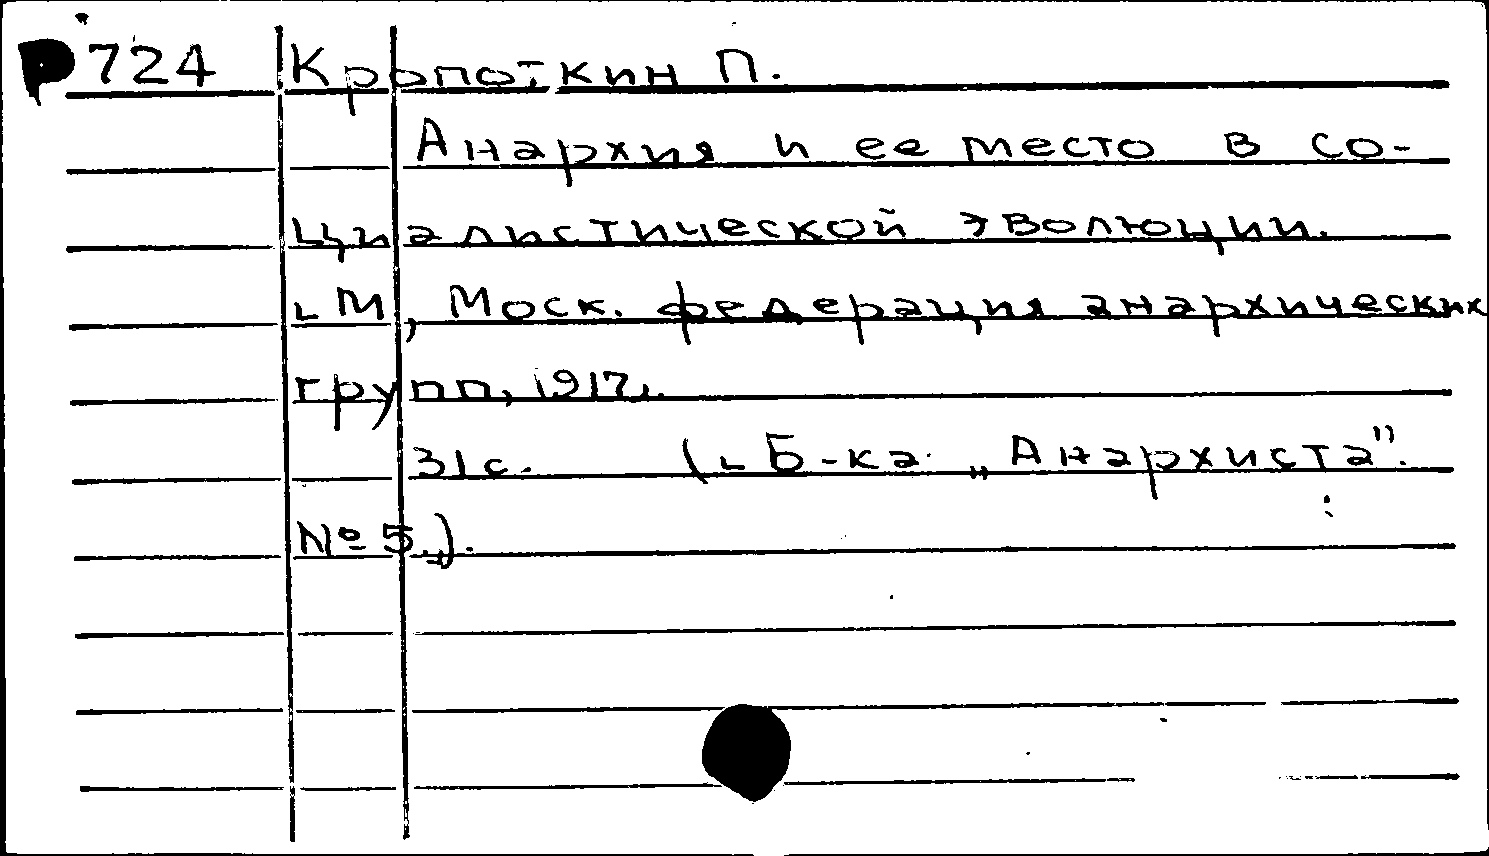 Р724 Кропоткин П.
Анархия и ее место в со-
циалистической эволюции.
М, Моск. федерация анархических
групп, 1917.
31с. (Б-ка „Анархиста".
№ 5.).